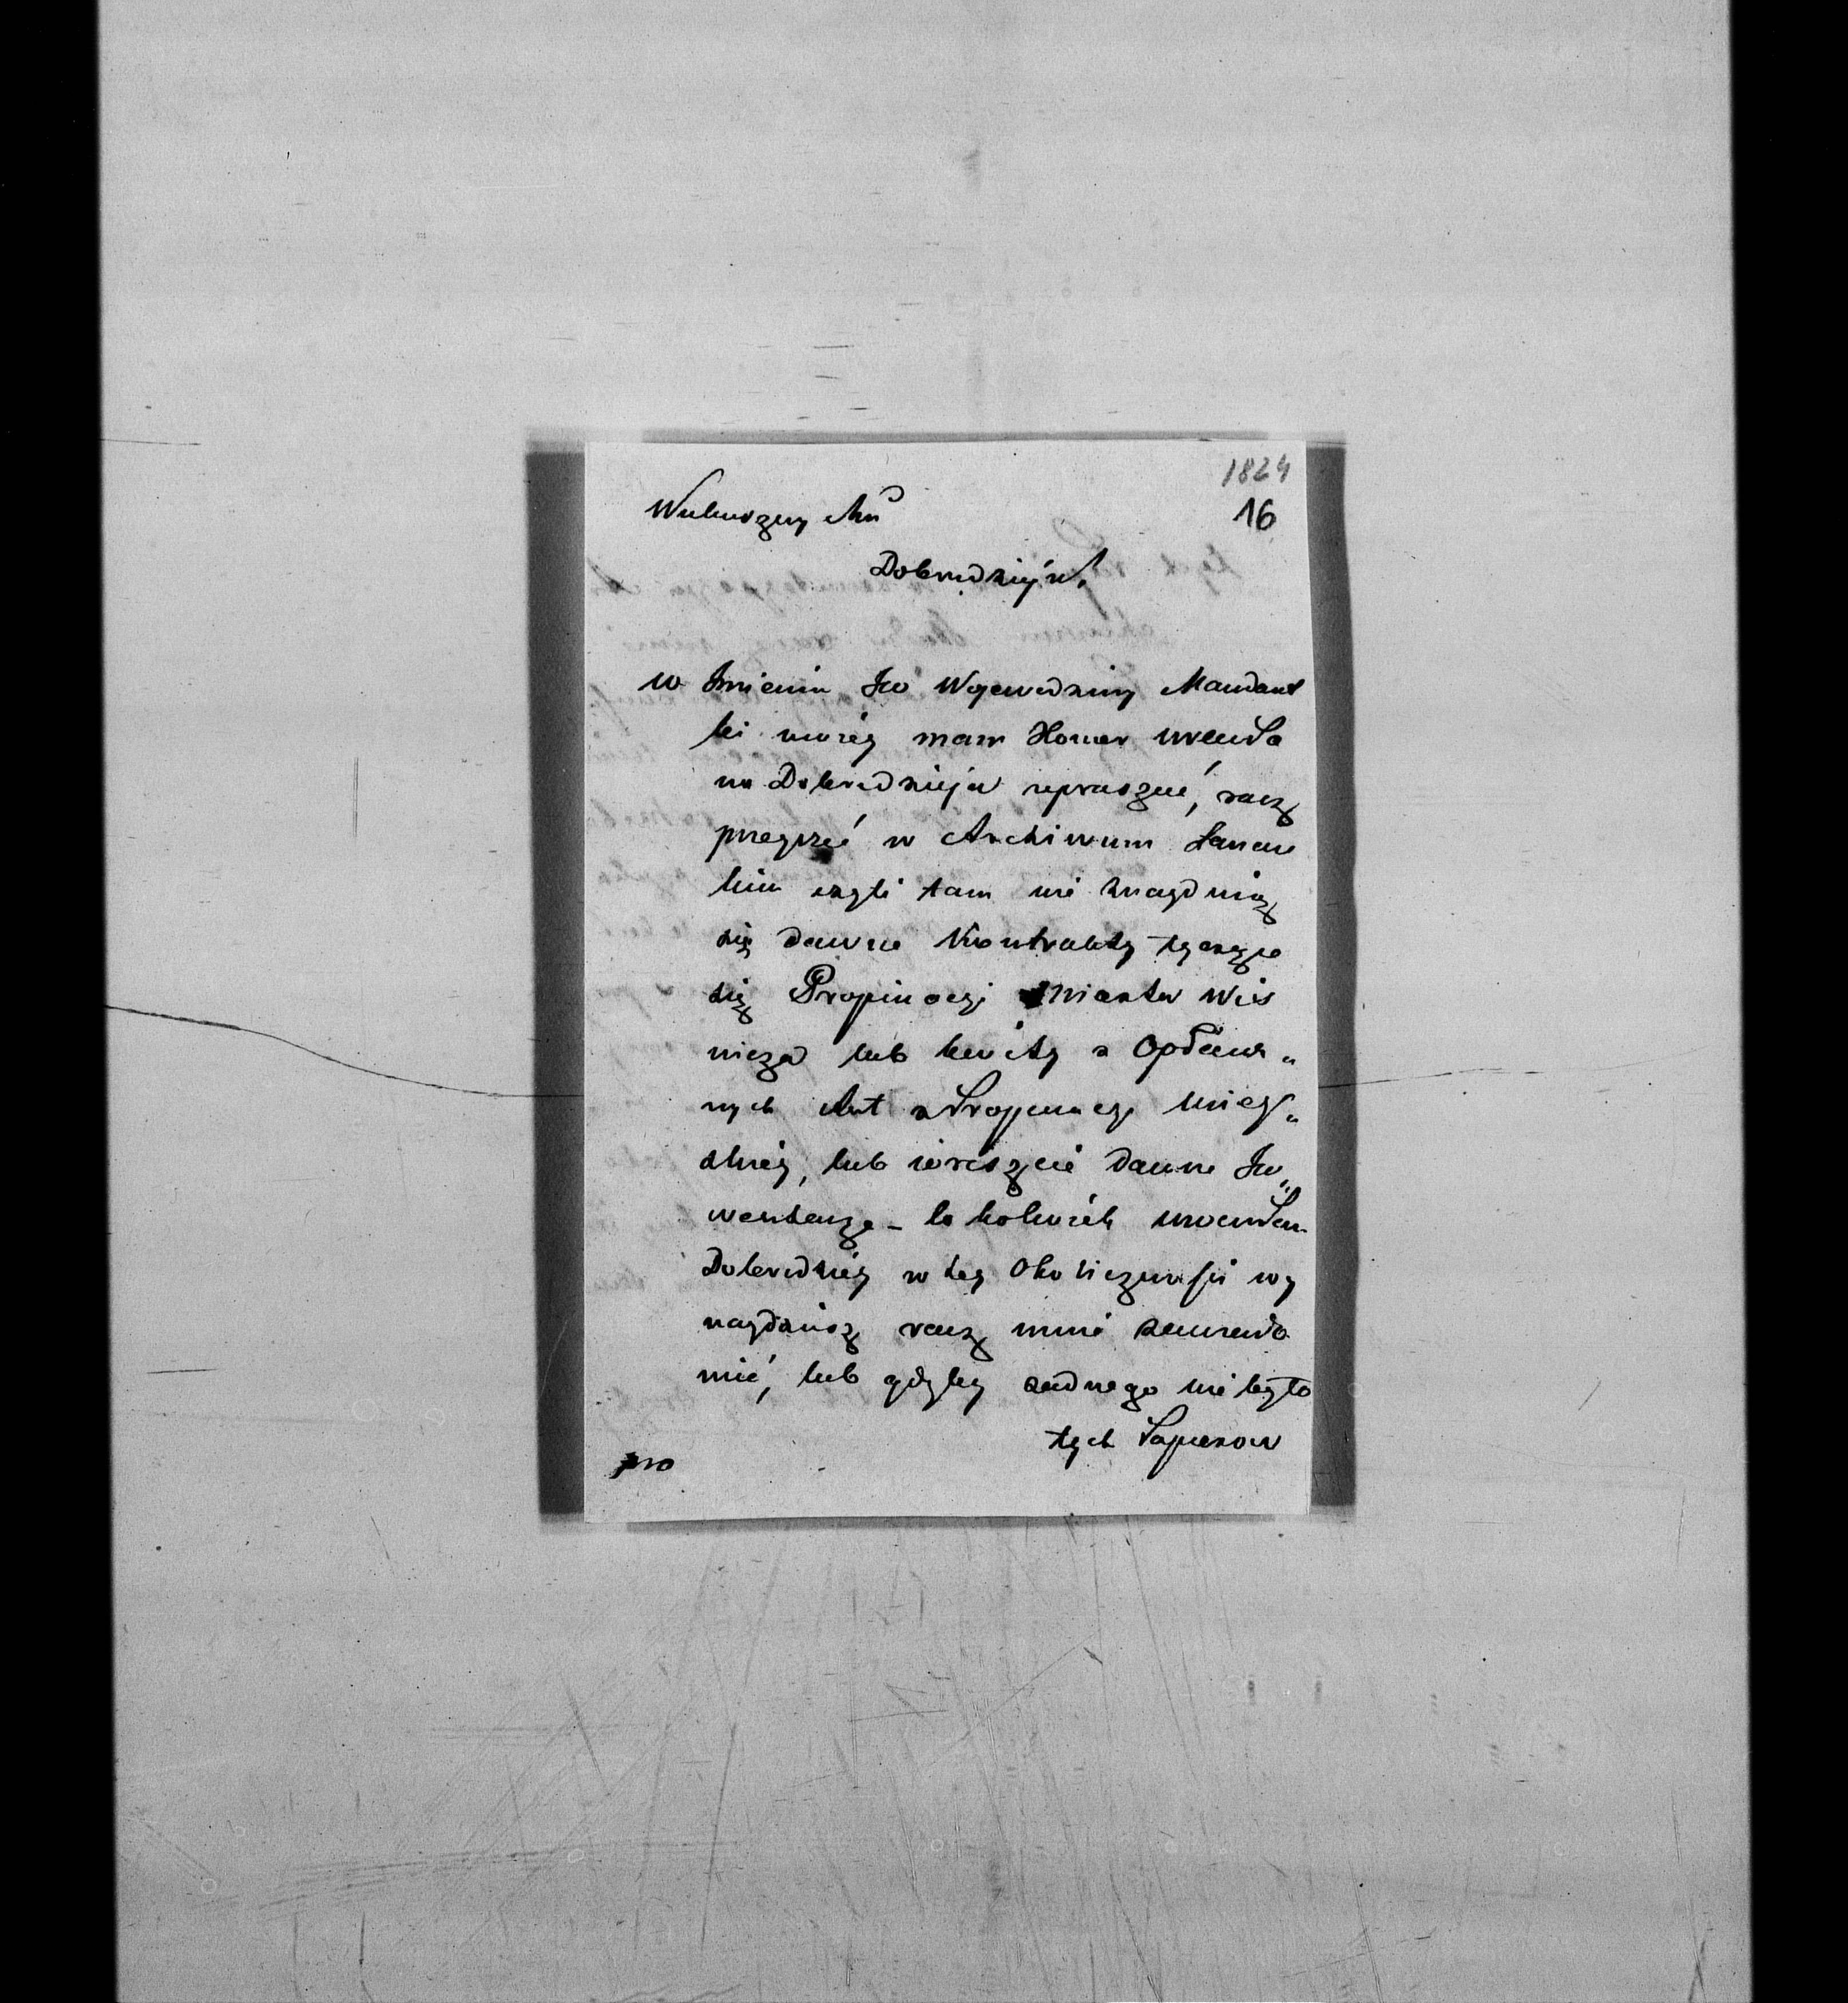 1824
16
Wielmożny Mu
Dobrodzieju!
W Imieniu Jw Wojewodziny Mandant
ki moiéy mam Honor WPanDa
na Dobrodzieja upraszać, racz
przeyrzeć w Archiwum Łancu
kim czyli tam nie znaydują
się dawne Kontrakty tyczące
się Propinacyi Miasta Wis
nicza lub kwity z Opłacan„
nych Rat z Propinacyi Miey„
skiey, lub wreszcie dawne In„
wentarze – co kolwiek
Dobrodziey w tey Okoliczności wy
naydziesz racz mnie zawiado
mić, lub gdyby żadnego nie było
tych Papierow